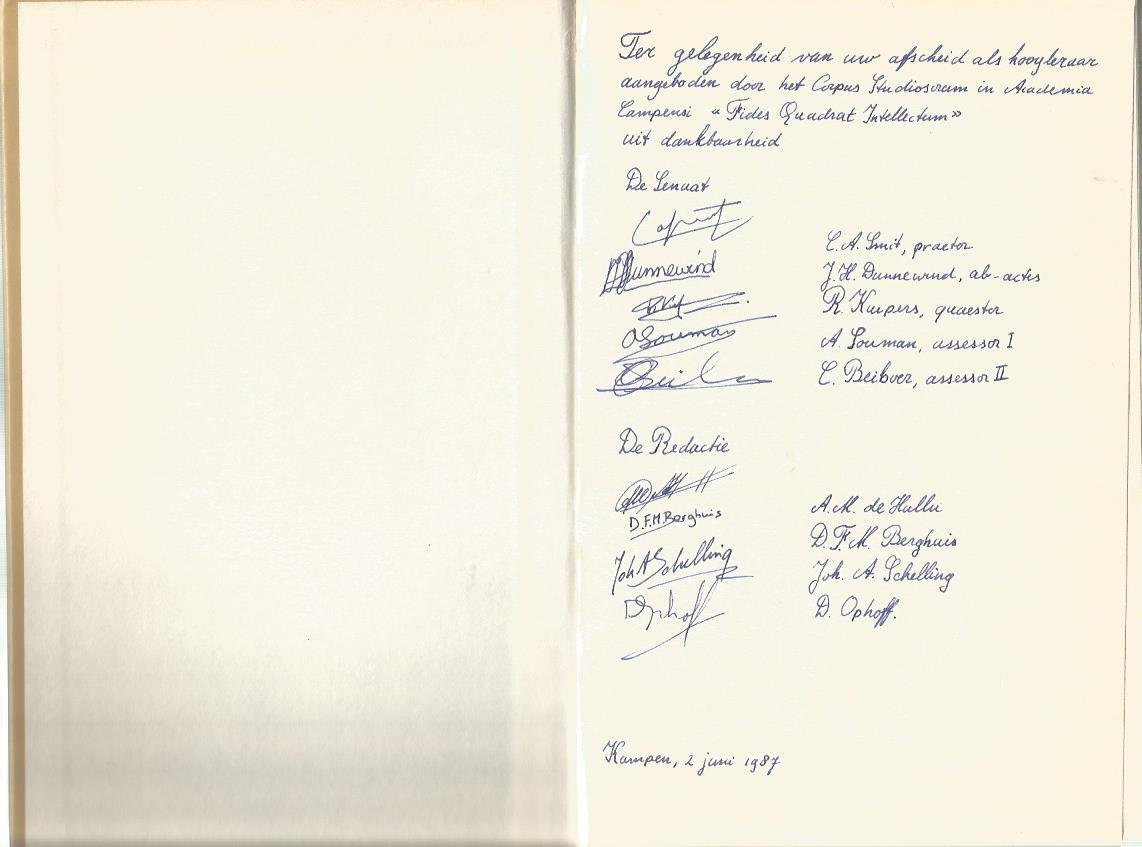 Ter gelegenheid van uw afscheid als hoogleraar
aangeboden door het Corpus Studiosorum in Academia
Campensi "Fides Quadrat Intellectum"
uit dankbaarheid
De Senaat
C.A. Smit, praetor
Dunnewind J.H. Dunnewind, ab-actis
R. Kuipers, quaestor
ASouman A. Souman, assessor I
C. Beiboer, assessor II
De Redactie
A.M. de Hullu
D.F.M. Berghuis D.F.M. Berghuis
Joh A Schelling Joh. A. Schelling
DOphoff D. Ophoff.
Kampen, 2 juni 1987